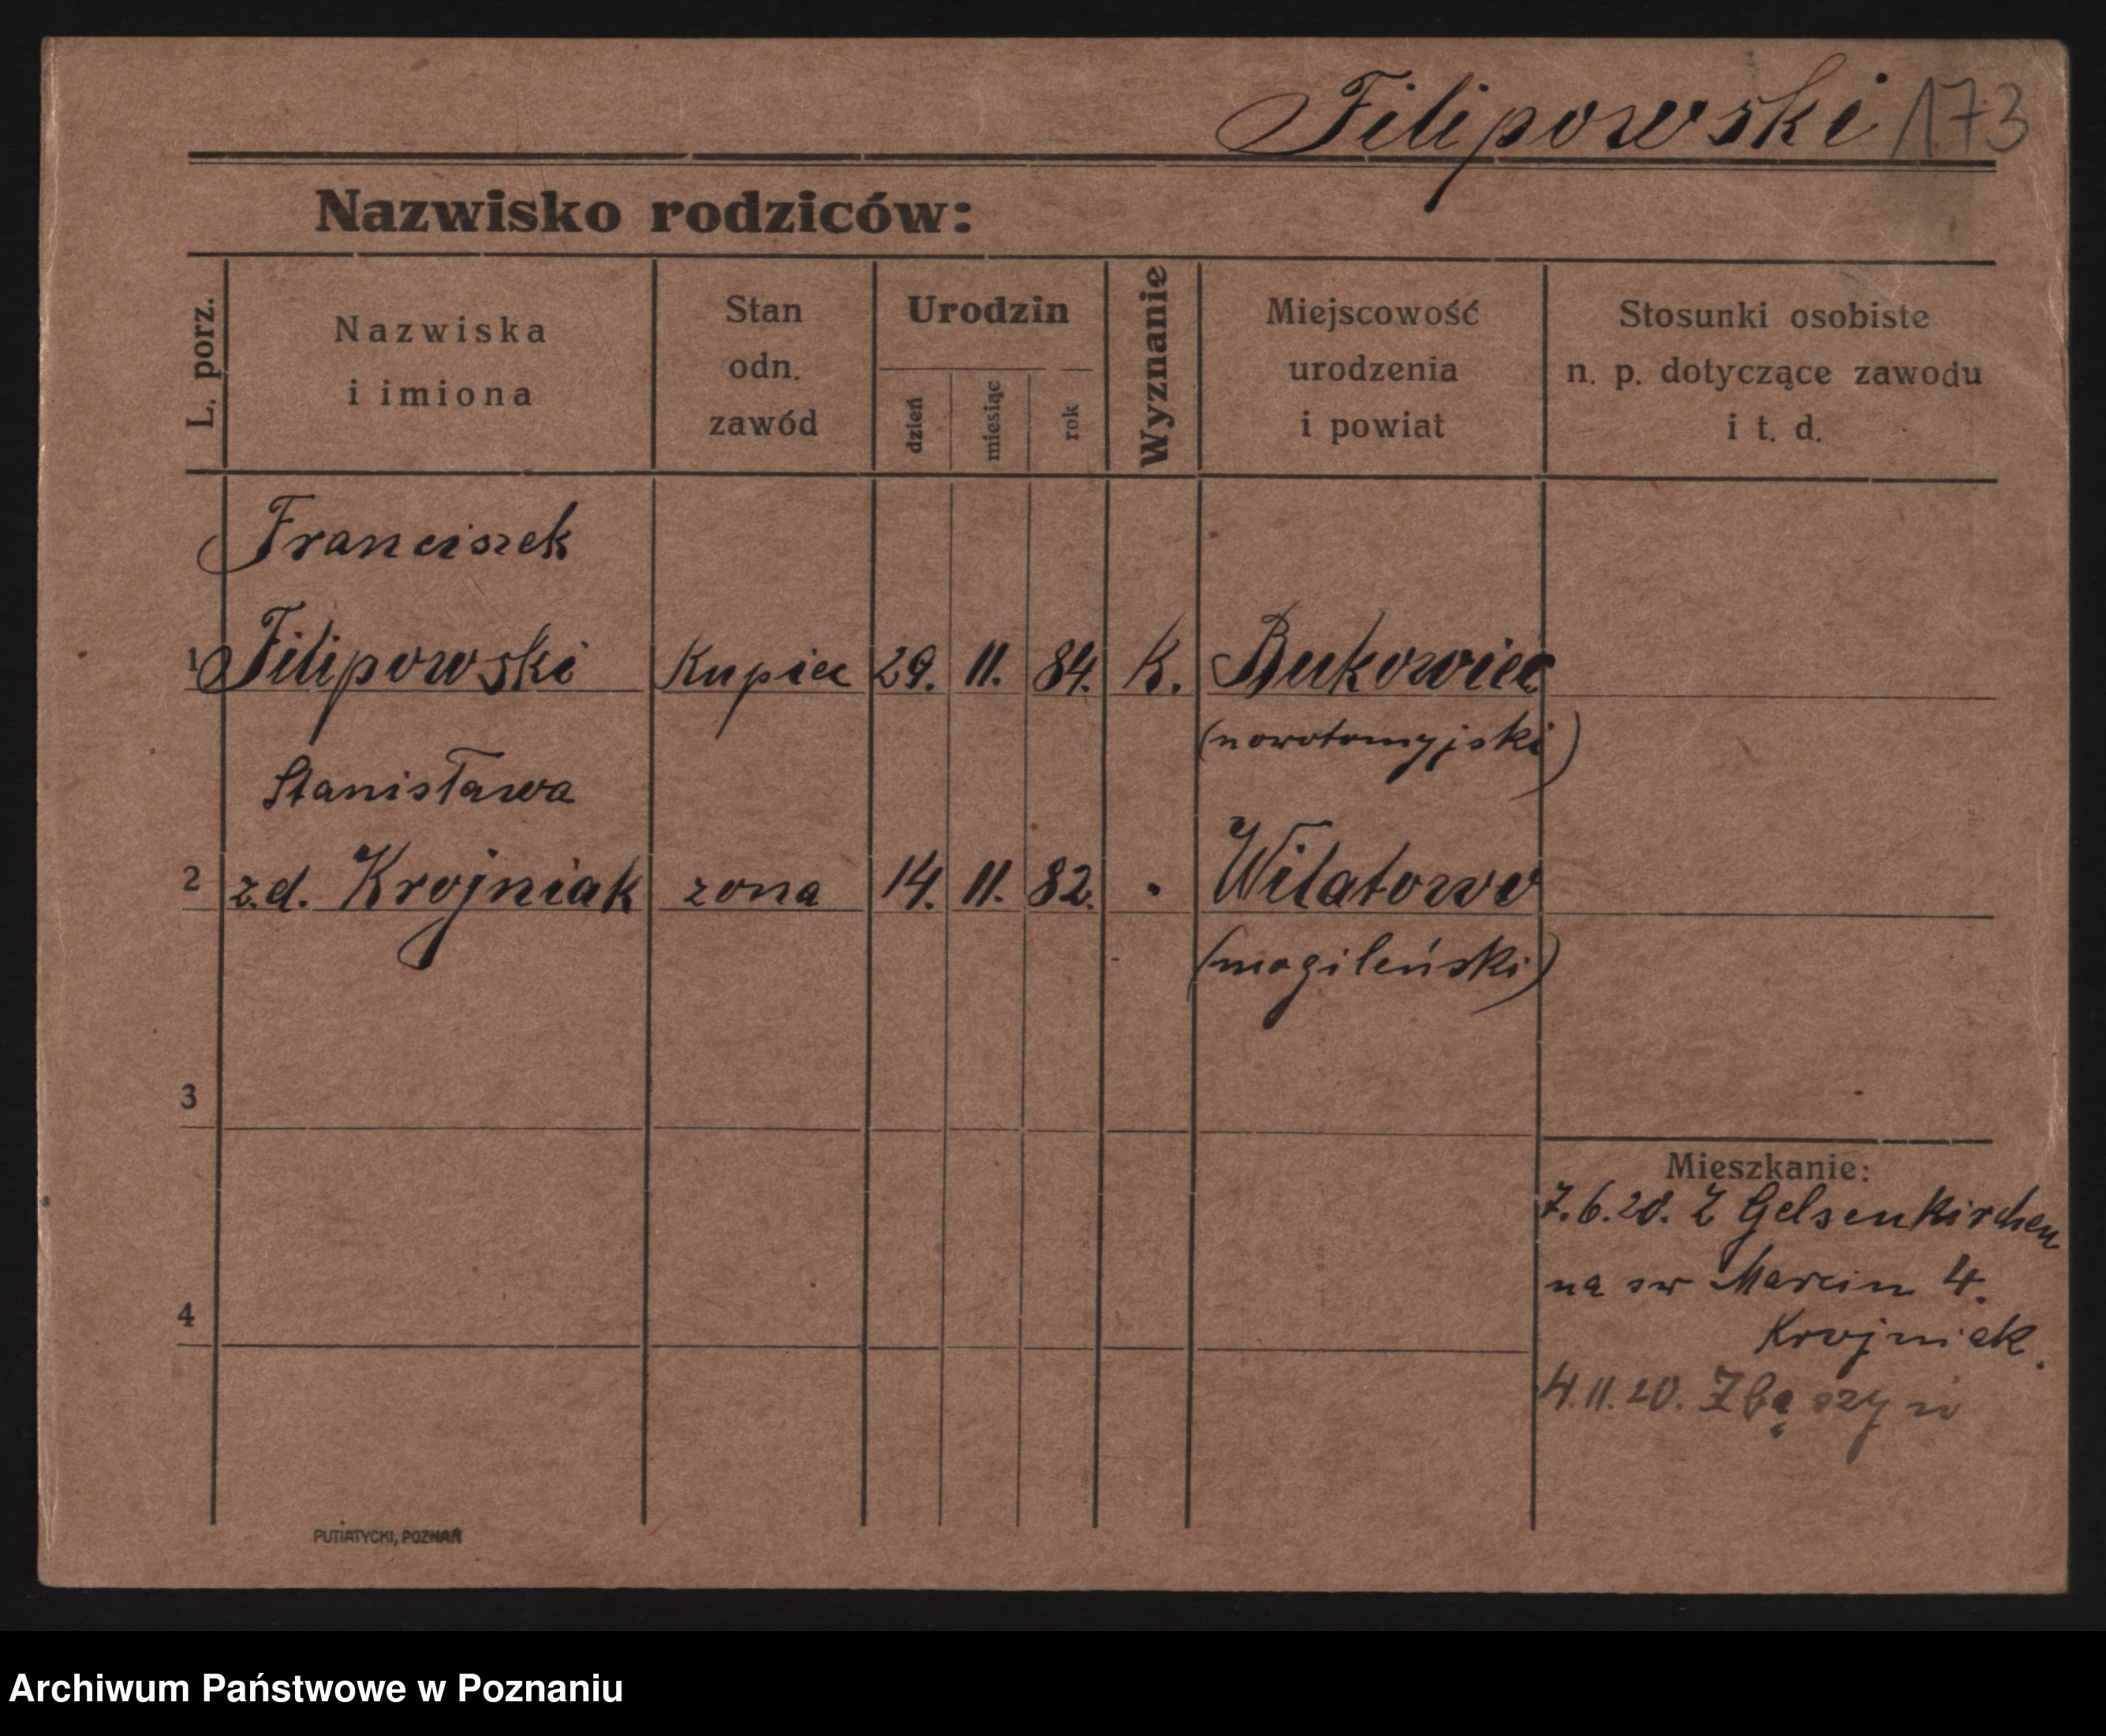 Filipowski 173
Nazwisko rodziców:
L. porz.
Nazwiska
i imiona
Stan
odn.
zawód
Urodzin
dzień
miesiąc
rok
Wyznanie
Miejscowość
urodzenia
i powiat
Stosunki osobiste
n. p. dotyczące zawodu
i t. d.
Franciszek
1 Filipowski Kupiec 29. 11. 84. K. Bukowiec
(nowotomyjski)
Stanisława
2 z.d. Krojniak zona 14. 11. 82. " Wilatowo
(mogileński)
3
Mieszkanie:
7.6.20. Z Gelsenkirchen
na sw Marcin 4.
Krojniak.
4
4.11.20. Zbąszyń
PUTIATYCKI, POZNAŃ
Archiwum Państwowe w Poznaniu